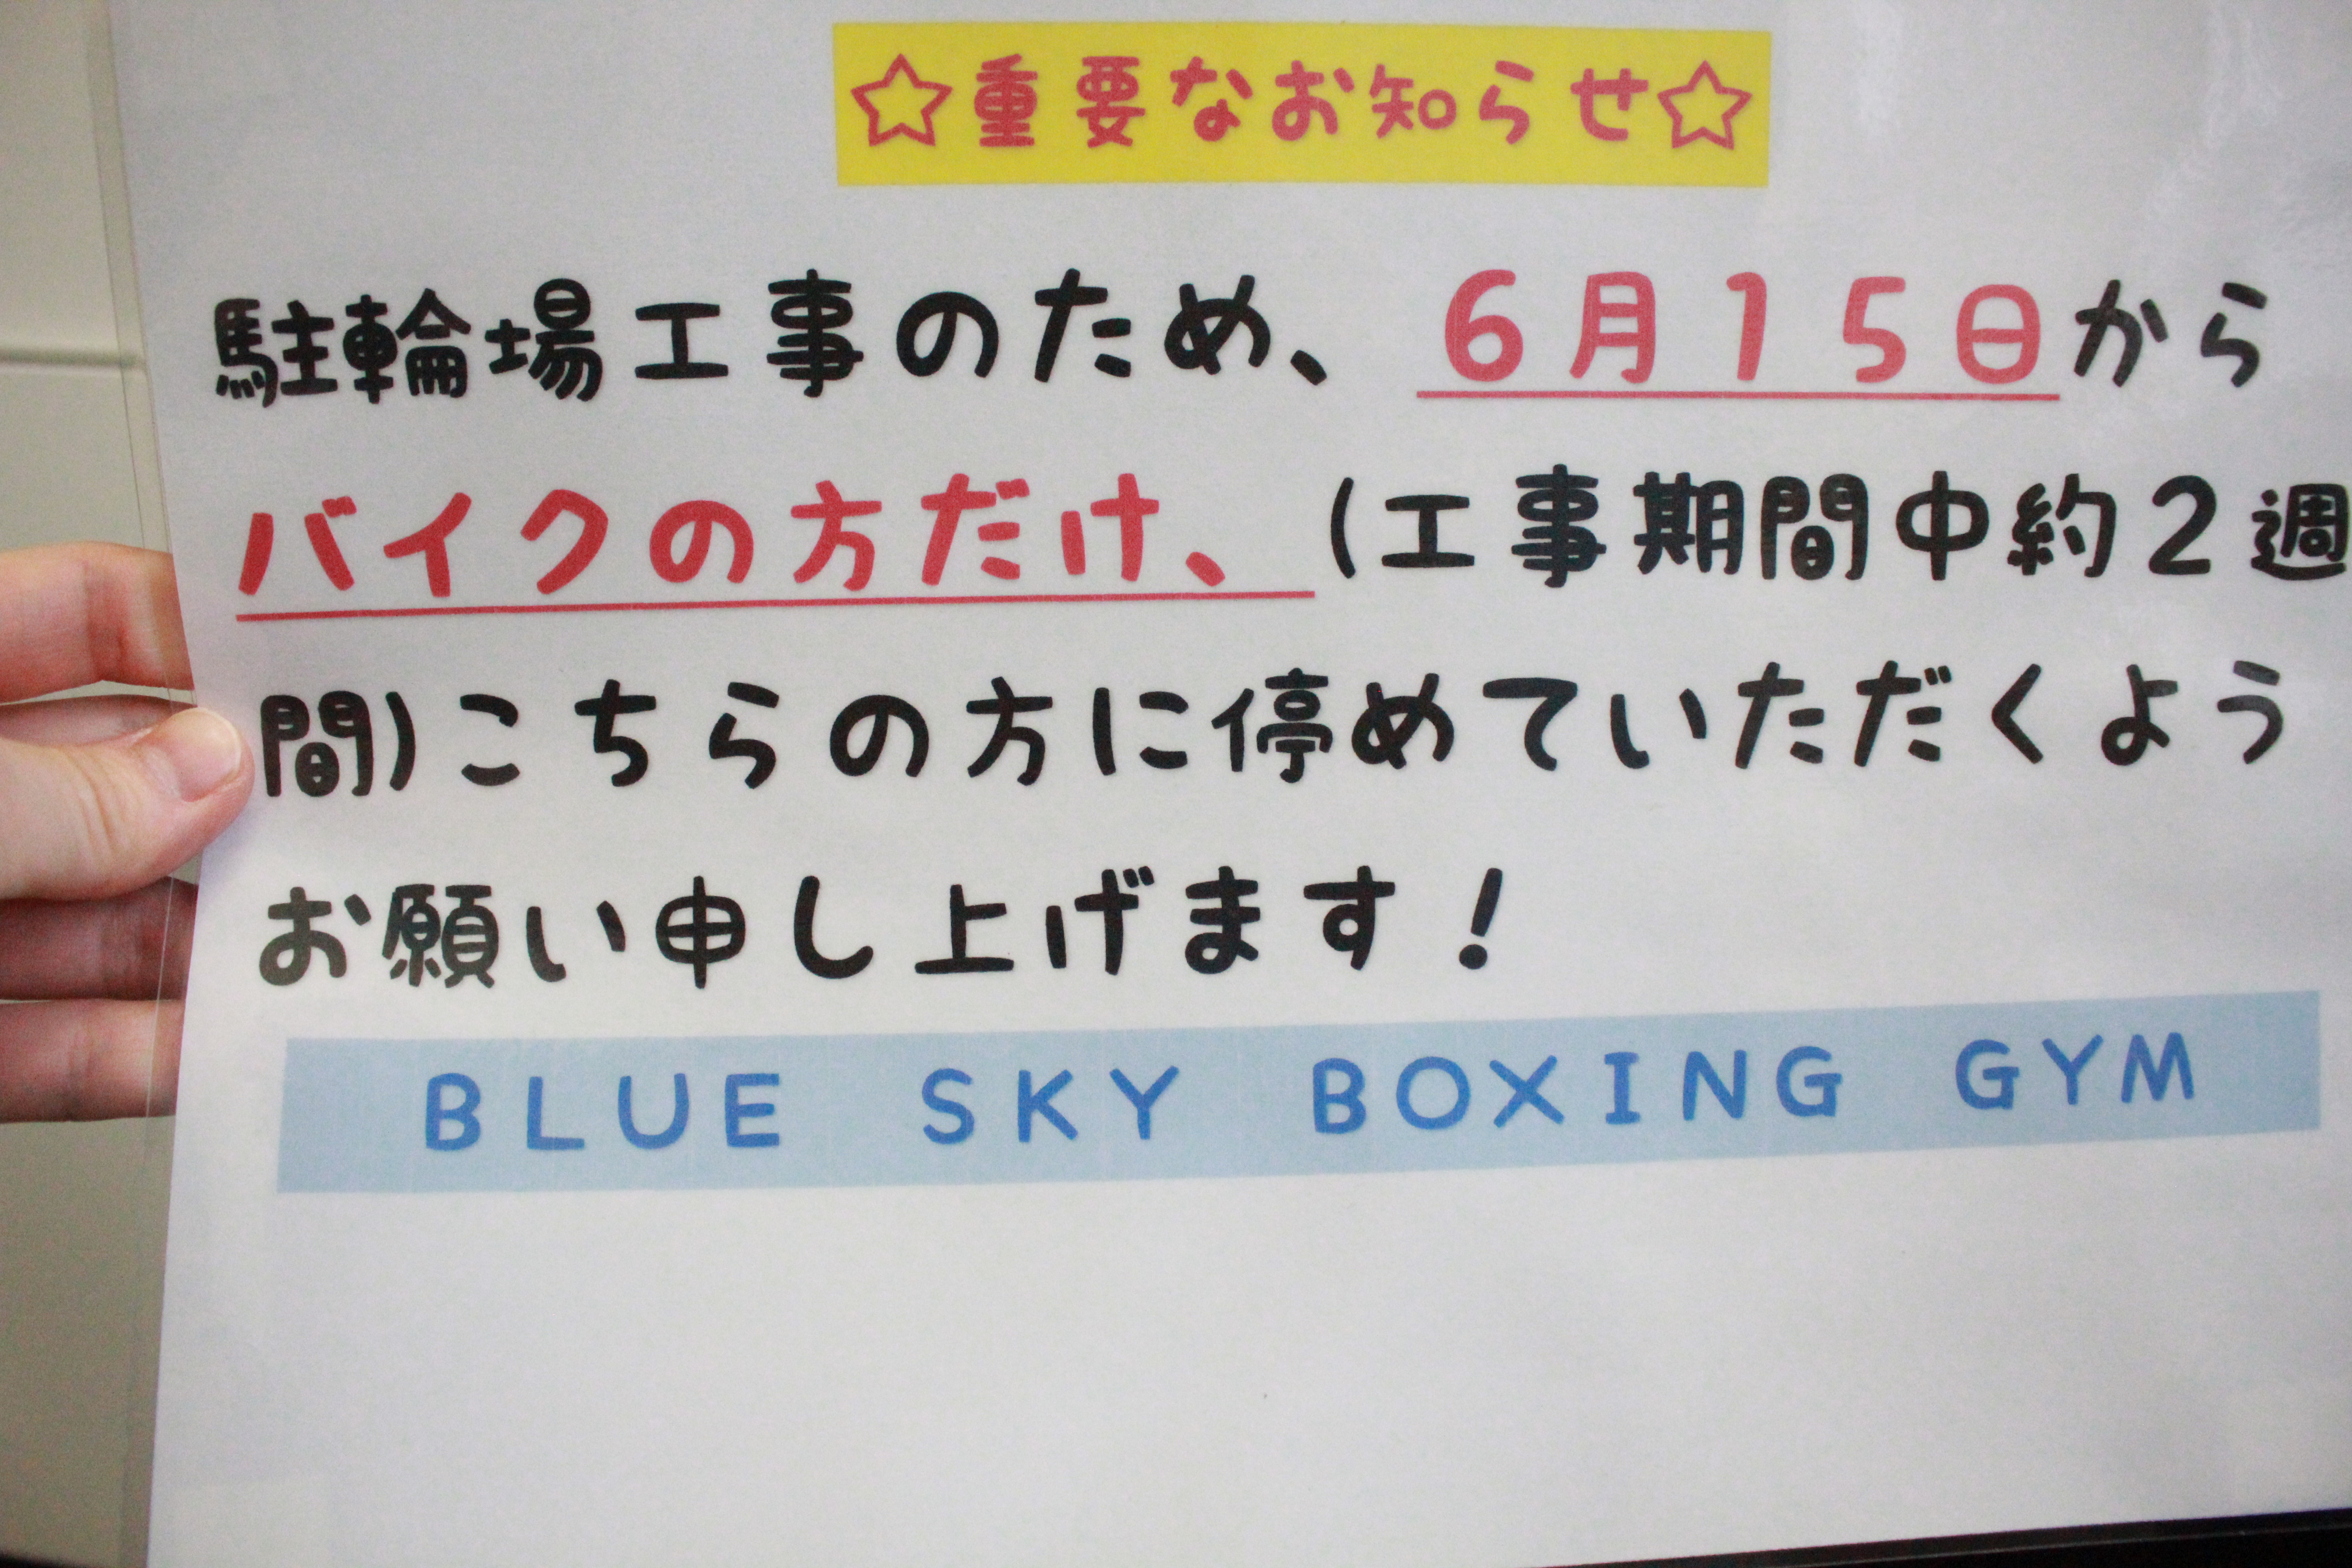 ☆重要なお知らせ☆
駐輪場工事のため、６月１５日から
バイクの方だけ、（工事期間中約２週
間）こちらの方に停めていただくよう
お願い申し上げます！
ＢＬＵＥ　ＳＫＹ　ＢＯＸＩＮＧ　ＧＹＭ